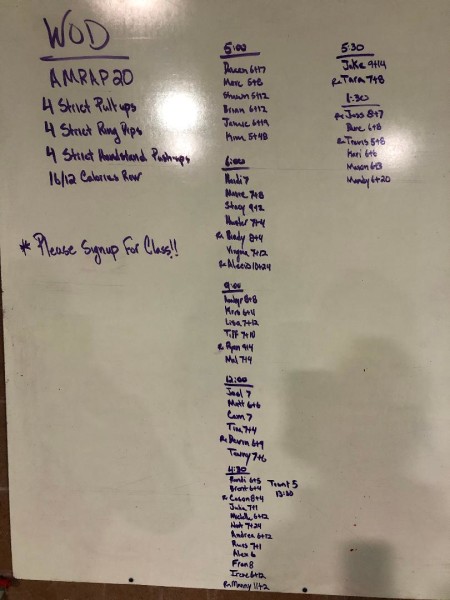 WOD
AMRAP 20
4 Strict Pullups
4 Strict Ring Dips
4 Strict Handstand Push-ups
16/12 Calories Row
* Please Signup For Class!!
5:00
6+17
Marc 5+8
Shawn 5+12
Brian 6+12
Jamie 6+19
Kim 5+48
6:00
Heidi 7
7+8
Stacy 9+2
Hunter 7+4
Rx Brady 8+4
7+12
Rx Alexis 10+24
9:00
8+8
Kris 6+4
Lisa 7+12
Tiff 7+10
Rx Ryan 9+4
Mal 7+4
12:00
Joel 7
Matt 6+6
Cam 7
Tina 7+4
Rx Devin 6+9
Tammy 7+6
4:30
Randi 6+5
Brent 6+4
Rx Cason 8+4
Julie 7+1
Michelle 6+12
Nat 7+24
Andrea 6+12
Russ 7+1
Alex 6
Fran 8
Irene 6+12
Rx Manny 11+2
5
13:30
5:30
Jake 9+14
Rx Tara 7+8
1:30
Rx Jess 8+7
6+8
Rx Travis 5+8
Kari 6+6
Mason 6+13
Mandy 6+20